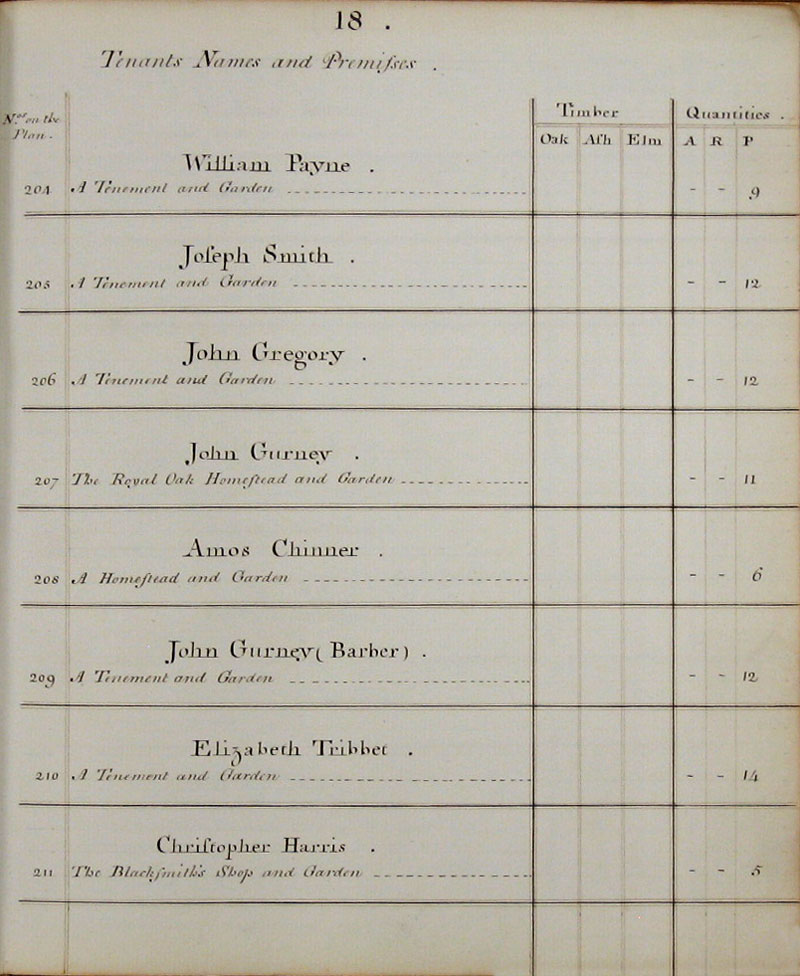 18 .
Tenants Names and Premiſses .
Nos. on the Plan .
Timber
Quantities .
Oak Aſh Elm
A R P
William Payne .
204 A Tenement and Garden - - 9
Joſeph Smith .
205 A Tenement and Garden - - 12
John Gregory .
206 A Tenement and Garden - - 12
John Gurney .
207 The Royal Oak Homeſtead and Garden - - 11
Amos Chinner .
208 A Homeſtead and Garden - - 6
John Gurney ( Barber ) .
209 A Tenement and Garden - - 12
Elizabeth Tribbet .
210 A Tenement and Garden - - 14
Chriſtopher Harris .
211 The Blackſmith's Shop and Garden - - 5